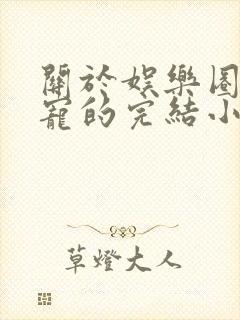 關於娛樂圈
寵的完結小
草燈大人